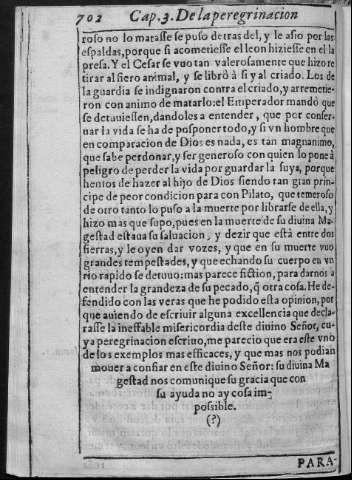 702 Cap. 3. De la peregrinacion
roso no lo matasse se puso detras del, y le asio por las
espaldas, porque si acometiesse el leon hiziesse en el la
presa. Y el Cesar se vuo tan valerosamente que hizo re
tirar al fiero animal, y se librò à si y al criado. Los de
la guardia se indignaron contra el criado, y arremetie-
ron con animo de matarlo: el Emperador mandò que
se detuuiessen, dandoles a entender, que por conser-
uar la vida se ha de posponer todo, y si vn hombre que
en comparacion de Dios es nada, es tan magnanimo,
que sabe perdonar, y ser generoso con quien lo pone à
peligro de perder la vida por guardar la suya, porque
hemos de hazer al hijo de Dios siendo tan gran prin-
cipe de peor condicion para con Pilato, que temeroso
de otro tanto lo puso a la muerte por librarse de ella, y
hizo mas que supo, pues en la muerte de su diuina Ma-
gestad estaua su saluacion, y dezir que està entre dos
sierras, y le oyen dar vozes, y que en su muerte vuo
grandes tempestades, y que echando su cuerpo en vn
rio rapido se detuuo: mas parece fiction, para darnos à
entender la grandeza de su pecado, q̃ otra cosa. He de-
fendido con las veras que he podido esta opinion, por
que auiendo de escriuir alguna excellencia que decla-
rasse la ineffable misericordia deste diuino Señor, cu-
ya peregrinacion escriuo, me parecio que era este vno
de los exemplos mas efficaces, y que mas nos podian
mouer a confiar en este diuino Señor: su diuina Ma
gestad nos comunique su gracia que con
su ayuda no ay cosa im-
possible.
(?)
PARA-